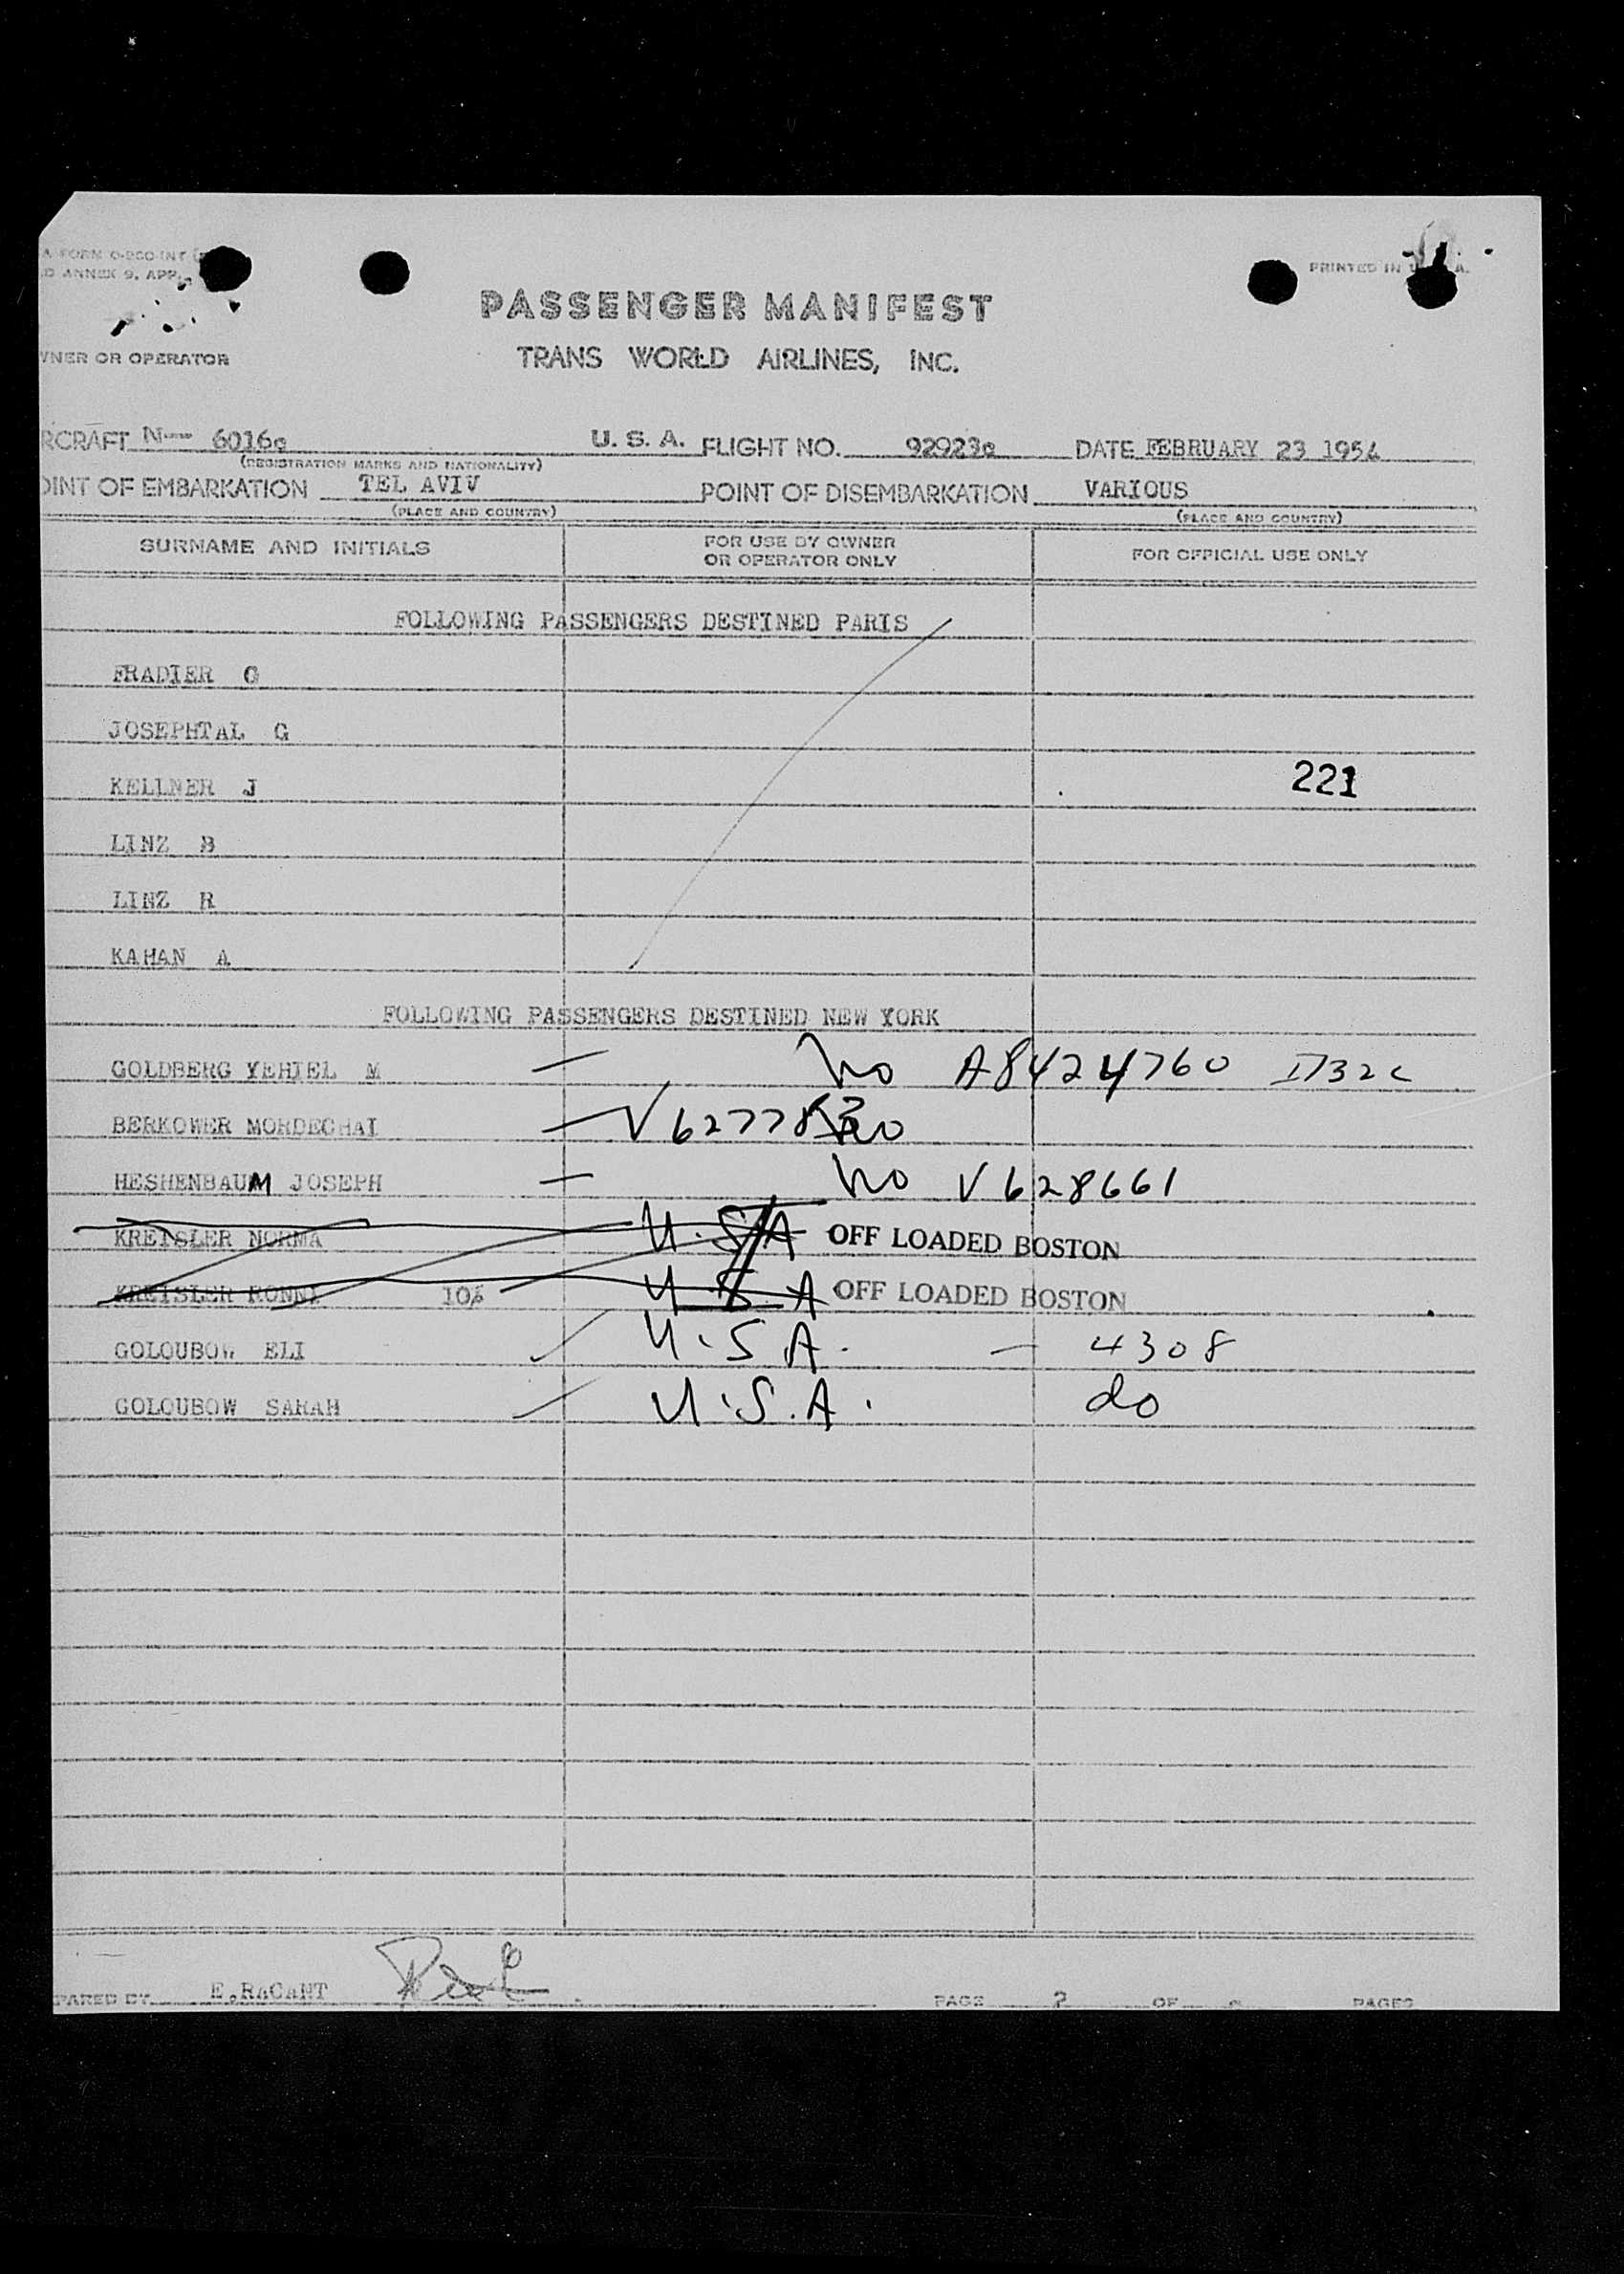 PRINTED IN
ANNEX 9, APP.
PASSENGER MANIFEST
OR OPERATOR
TRANS WORLD AIRLINES, INC.
RCRAFT N-- 6016c U. S. A. FLIGHT NO. 92923c DATE FEBRUARY 23 1954
(REGISTRATION MARKS AND NATIONALITY)
OINT OF EMBARKATION TEL AVIV POINT OF DISEMBARKATION VARIOUS
(PLACE AND COUNTRY) (PLACE AND COUNTRY)
SURNAME AND INITIALS FOR USE BY OWNER OR OPERATOR ONLY FOR OFFICIAL USE ONLY
FOLLOWING PASSENGERS DESTINED PARIS
FRADIER G
JOSEPHTAL G
KELLNER J 221
LINZ B
LINZ R
KAHAN A
FOLLOWING PASSENGERS DESTINED NEW YORK
GOLDBERG YEHIEL M — no A8424760
BERKOWER MORDECHAI —
HESHENBAUM JOSEPH — no V628661
KREISLER NORMA U.S.A OFF LOADED BOSTON
KREISLER RONNI U.S.A OFF LOADED BOSTON
GOLOUBOW ELI U.S.A. — 4308
GOLOUBOW SARAH U.S.A. do
PARED BY E.RACANT PAGE 2 OF PAGES